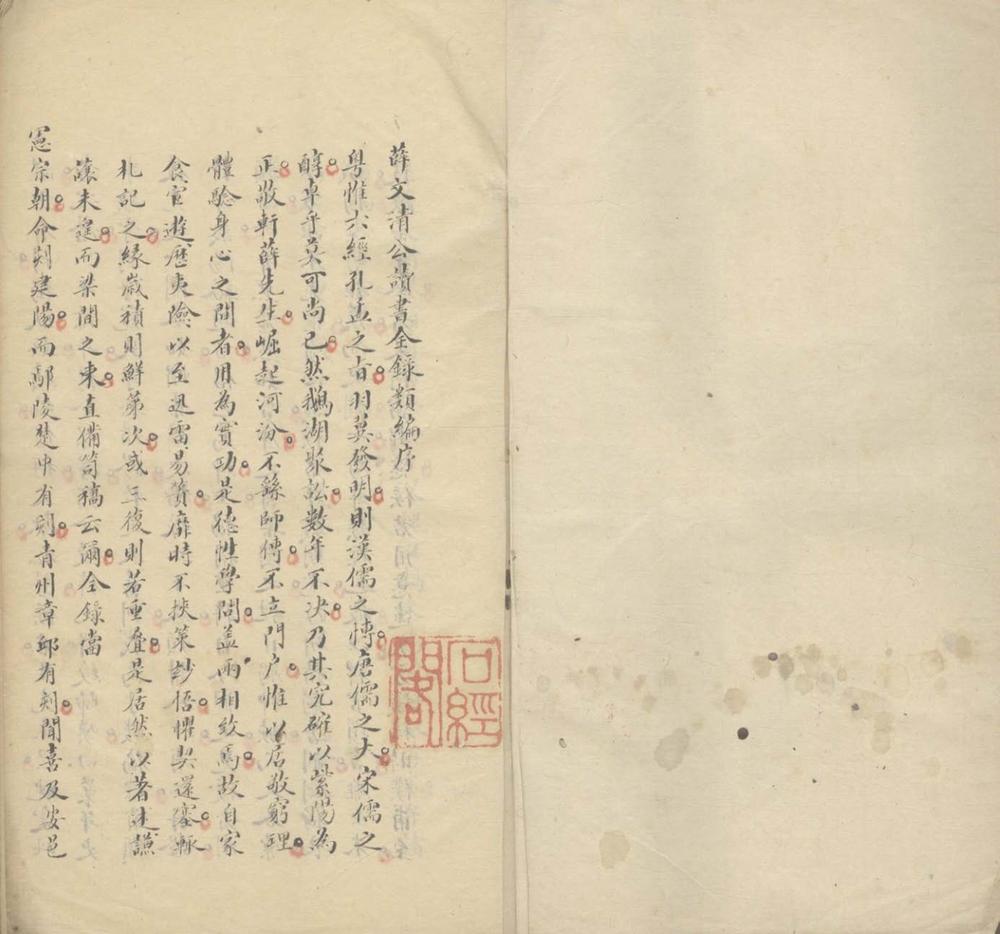 薛文清公讀書全錄類編序
粵惟六經孔孟之旨羽翼發明則漢儒之慱唐儒之大宋儒之
醇卓乎莫可尚已然鵝湖聚訟數年不決乃其究確以紫陽為
正敬軒薛先生崛起河汾不繇師傅不立門户惟以居敬窮理
體驗身心之間者用為實功是德性學問盖兩相致焉故自家
食宦遊歷夷險以至迅雷易簀靡時不挾筞妙悟懼契還塞輒
札記之緣歲積則鮮第次或三復則若重疊是居然以著述謙
讓未遑而梁間之束直備笥稿云爾全錄當
憲宗朝命刋建陽而鄢陵楚中有刻青州章邱有刻聞喜及安邑
石經
閣